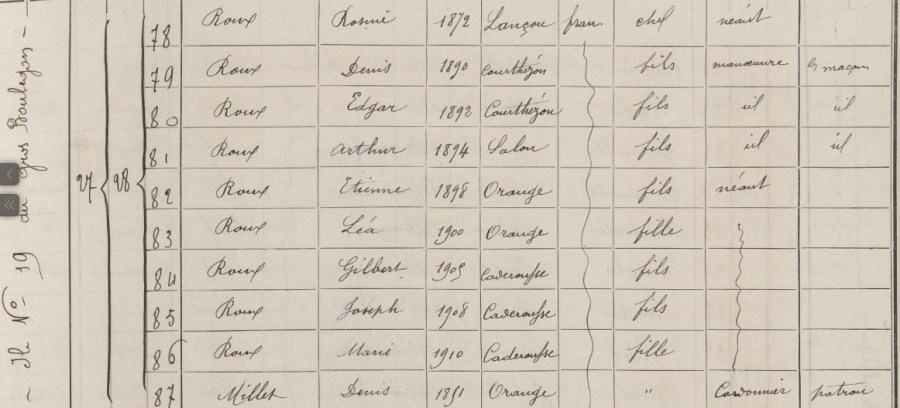 78 Roux Rosine 1872 Lançon fran. chef néant
79 Roux Denis 1890 Courthézon fils manœuvre maçon
80 Roux Edgar 1892 Courthézon fils id id
81 Roux Arthur 1894 Salon fils id id
27 28 82 Roux Etienne 1898 Orange fils néant
83 Roux Léa 1900 Orange fille
84 Roux Gilbert 1905 Caderousse fils
85 Roux Joseph 1908 Caderousse fils
86 Roux Marie 1910 Caderousse fille
87 Millet Denis 1851 Orange " Cordonnier patron
Ilot No 19 du Gros